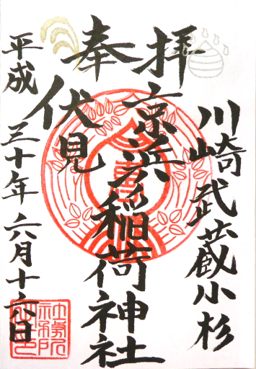 川崎武蔵小杉
奉拝
京濱伏見稲荷神社
平成三十年六月十六日